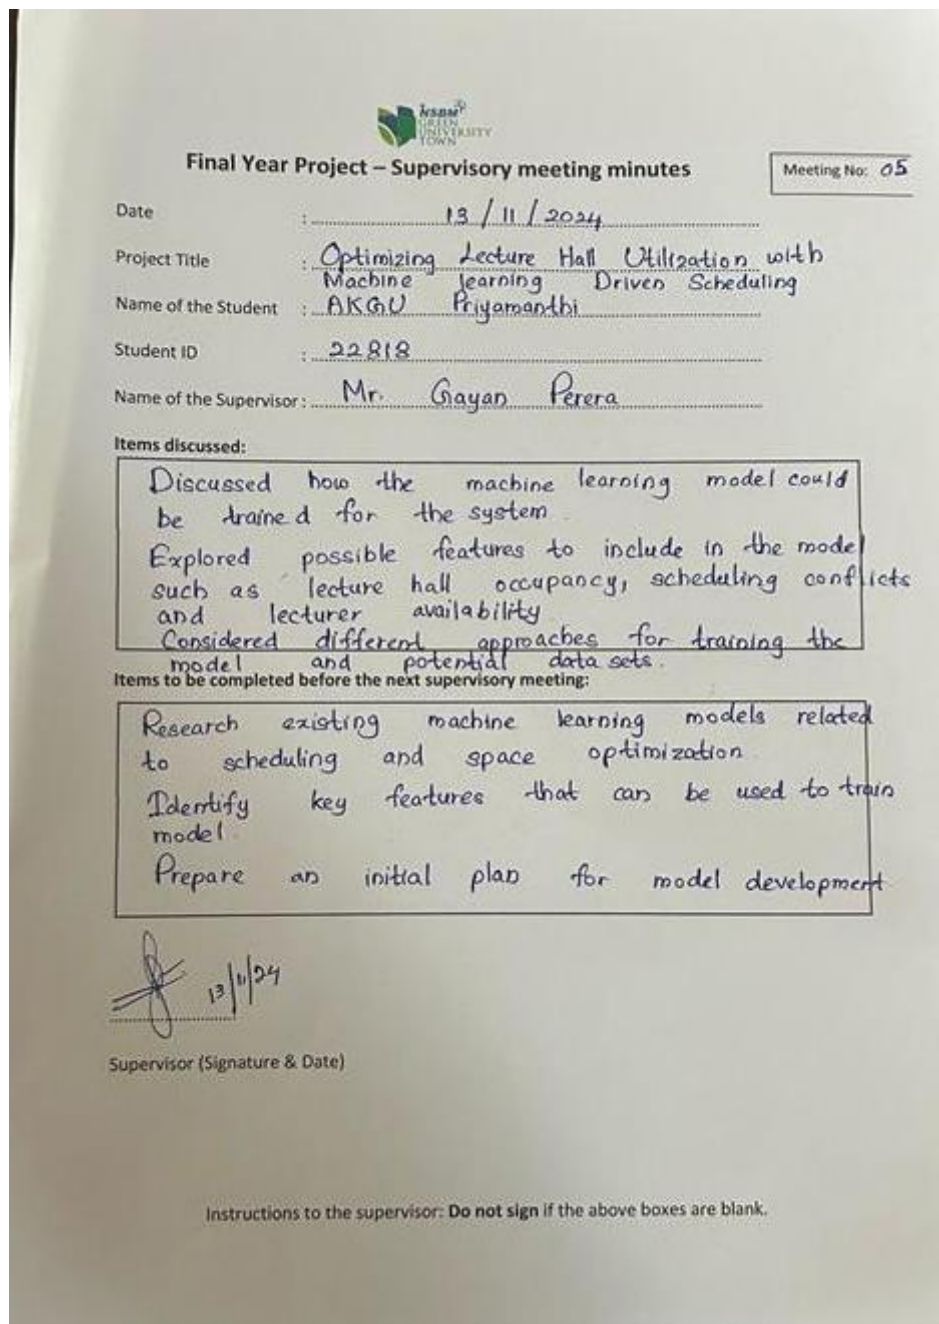 NSBM
GREEN
UNIVERSITY
TOWN
Final Year Project – Supervisory meeting minutes
Meeting No: 05
Date : 13 / 11 / 2024
Project Title : Optimizing Lecture Hall Utilization with
Machine learning Driven Scheduling
Name of the Student : AKGU Priyamanthi
Student ID : 22818
Name of the Supervisor : Mr. Gayan Perera
Items discussed:
Discussed how the machine learning model could
be trained for the system.
Explored possible features to include in the model
such as lecture hall occupancy, scheduling conflicts
and lecturer availability
Considered different approaches for training the
model and potential data sets.
Items to be completed before the next supervisory meeting:
Research existing machine learning models related
to scheduling and space optimization.
Identify key features that can be used to train
model.
Prepare an initial plan for model development
13/11/24
Supervisor (Signature & Date)
Instructions to the supervisor: Do not sign if the above boxes are blank.